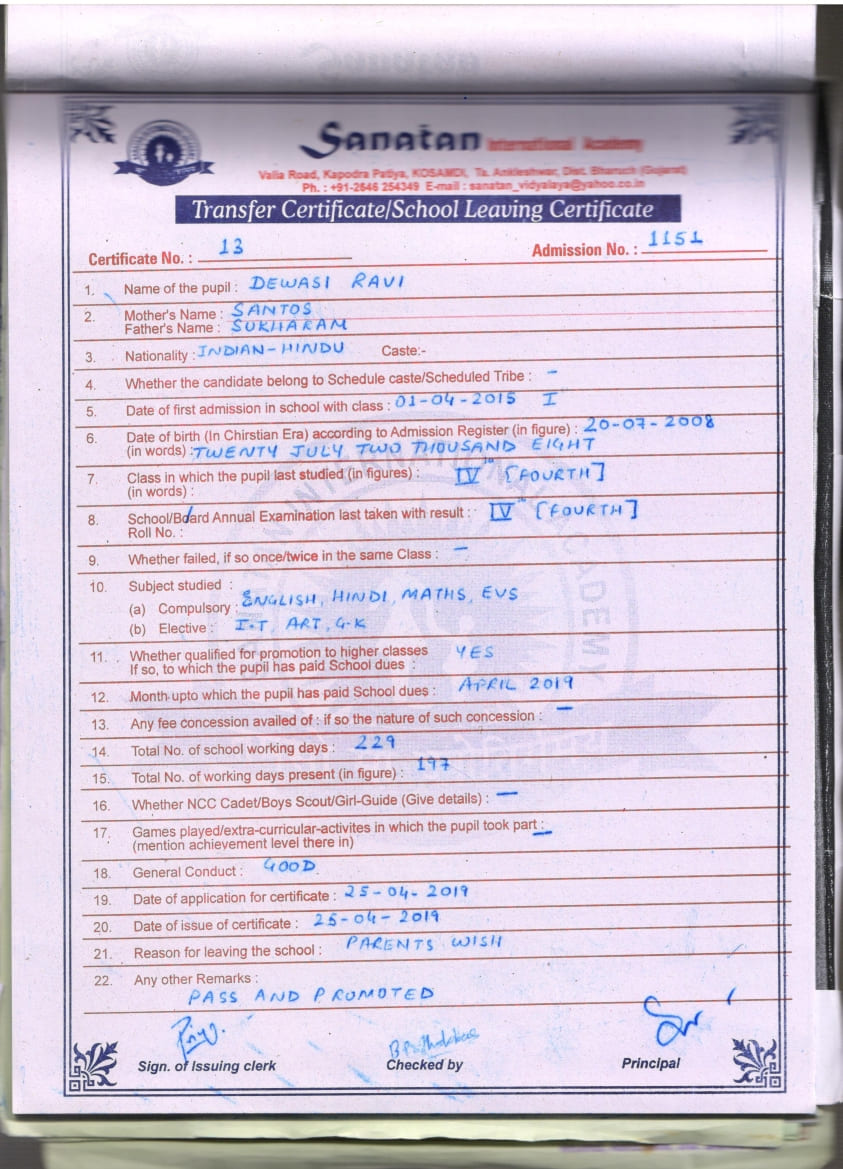 Sanatan International Academy
Valia Road, Kapodra Patiya, KOSAMDI, Ta. Ankleshwar, Dist. Bharuch (Gujarat)
Ph. : +91-2646 254349 E-mail : sanatan_vidyalaya@yahoo.co.in
Transfer Certificate/School Leaving Certificate
Certificate No. : 13 Admission No. : 1151
1. Name of the pupil : DEWASI RAVI
2. Mother's Name : SANTOS
Father's Name : SUKHARAM
3. Nationality : INDIAN-HINDU Caste:-
4. Whether the candidate belong to Schedule caste/Scheduled Tribe : -
5. Date of first admission in school with class : 01-04-2015 I
6. Date of birth (In Chirstian Era) according to Admission Register (in figure) : 20-07-2008
(in words) : TWENTY JULY TWO THOUSAND EIGHT
7. Class in which the pupil last studied (in figures) : IV TH [FOURTH]
(in words) :
8. School/Board Annual Examination last taken with result : IV TH [FOURTH]
Roll No. :
9. Whether failed, if so once/twice in the same Class : -
10. Subject studied :
(a) Compulsory : ENGLISH, HINDI, MATHS, EVS
(b) Elective : I.T, ART, G.K
11. Whether qualified for promotion to higher classes YES
If so, to which the pupil has paid School dues :
12. Month upto which the pupil has paid School dues : APRIL 2019
13. Any fee concession availed of : if so the nature of such concession : -
14. Total No. of school working days : 229
15. Total No. of working days present (in figure) : 197
16. Whether NCC Cadet/Boys Scout/Girl-Guide (Give details) : -
17. Games played/extra-curricular-activites in which the pupil took part : -
(mention achievement level there in)
18. General Conduct : GOOD
19. Date of application for certificate : 25-04-2019
20. Date of issue of certificate : 25-04-2019
21. Reason for leaving the school : PARENTS WISH
22. Any other Remarks :
PASS AND PROMOTED
Sign. of Issuing clerk Checked by Principal